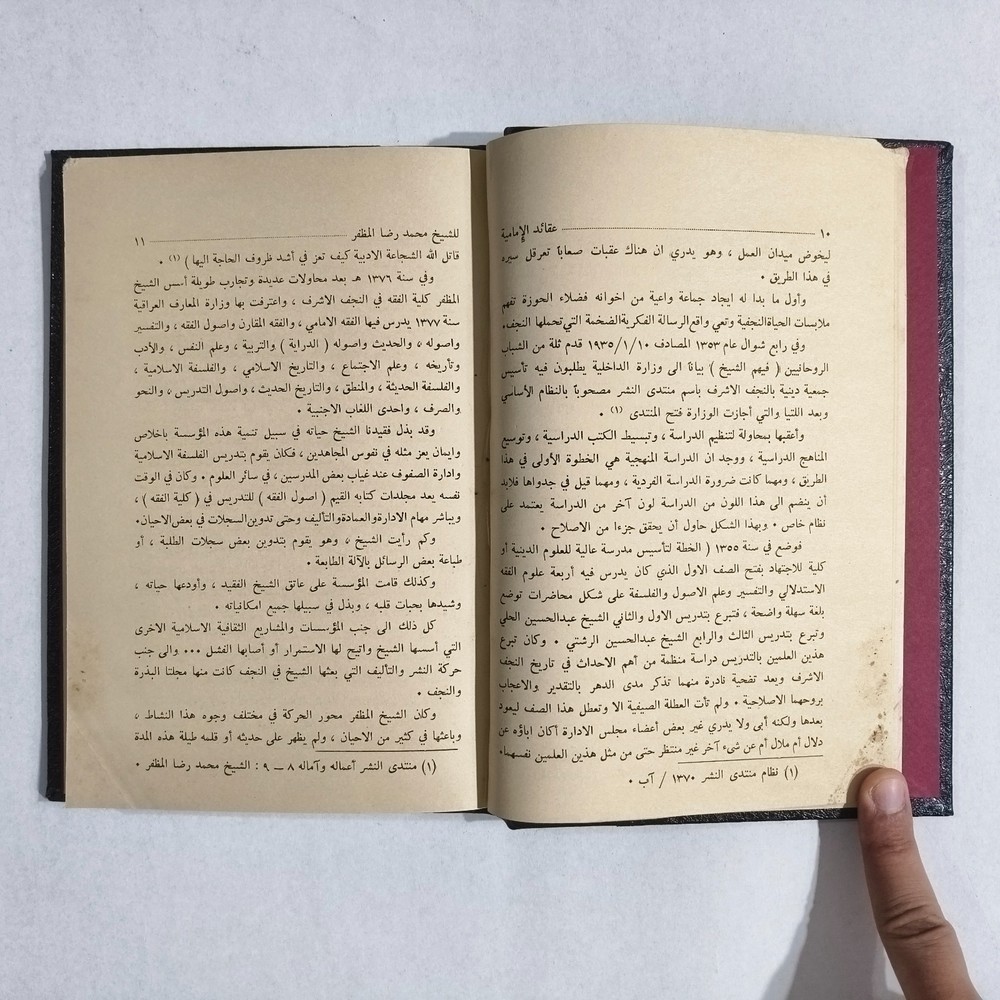 ١٠ عقائد الإمامية
ليخوض ميدان العمل ، وهو يدري ان هناك عقبات صعاباً تعرقل سيره
في هذا الطريق .
وأول ما بدا له إيجاد جماعة واعية من اخوانه فضلاء الحوزة تفهم
ملابسات الحياة النجفية وتعي واقع الرسالة الفكرية الضخمة التي تحملها النجف.
وفي رابع شوال عام ١٣٥٣ المصادف ١٩٣٥/١/١٠ قدم ثلة من الشباب
الروحانيين ( فيهم الشيخ ) بياناً الى وزارة الداخلية يطلبون فيه تأسيس
جمعية دينية بالنجف الاشرف باسم منتدى النشر مصحوباً بالنظام الأساسي
وبعد اللتيا والتي أجازت الوزارة فتح المنتدى (١) .
وأعقبها بمحاولة لتنظيم الدراسة ، وتبسيط الكتب الدراسية ، وتوسيع
المناهج الدراسية ، ووجد ان الدراسة المنهجية هي الخطوة الأولى في هذا
الطريق ، ومهما كانت ضرورة الدراسة الفردية ، ومهما قيل في جدواها فلابد
أن ينضم الى هذا اللون من الدراسة لون آخر من الدراسة يعتمد على
نظام خاص . وبهذا الشكل حاول أن يحقق جزءا من الاصلاح .
فوضع في سنة ١٣٥٥ ( الخطة لتأسيس مدرسة عالية للعلوم الدينية أو
كلية للاجتهاد بفتح الصف الاول الذي كان يدرس فيه أربعة علوم الفقه
الاستدلالي والتفسير وعلم الاصول والفلسفة على شكل محاضرات توضع
بلغة سهلة واضحة ، فتبرع بتدريس الاول والثاني الشيخ عبدالحسين الحلي
وتبرع بتدريس الثالث والرابع الشيخ عبدالحسين الرشتي . وكان تبرع
هذين العلمين بالتدريس دراسة منظمة من أهم الاحداث في تاريخ النجف
الاشرف وبعد تضحية نادرة منهما تذكر مدى الدهر بالتقدير والاعجاب
بروحهما الاصلاحية . ولم تأت العطلة الصيفية الا وتعطل هذا الصف ليعود
بعدها ولكنه أبى ولا يدري غير بعض أعضاء مجلس الادارة أكان اباؤه عن
دلال أم ملال أم عن شىء آخر غير منتظر حتى من مثل هذين العلمين نفسهما.
(١) نظام منتدى النشر ١٣٧٠ / آب .
للشيخ محمد رضا المظفر ١١
قاتل الله الشجاعة الادبية كيف تعز في أشد ظروف الحاجة اليها ) (١) .
وفي سنة ١٣٧٦ هـ بعد محاولات عديدة وتجارب طويلة أسس الشيخ
المظفر كلية الفقه في النجف الاشرف ، واعترفت بها وزارة المعارف العراقية
سنة ١٣٧٧ يدرس فيها الفقه الامامي ، والفقه المقارن واصول الفقه ، والتفسير
واصوله ، والحديث واصوله ( الدراية ) والتربية ، وعلم النفس ، والأدب
وتأريخه ، وعلم الاجتماع ، والتاريخ الاسلامي ، والفلسفة الاسلامية ،
والفلسفة الحديثة ، والمنطق ، والتاريخ الحديث ، واصول التدريس ، والنحو
والصرف ، واحدى اللغاب الاجنبية .
وقد بذل فقيدنا الشيخ حياته في سبيل تنمية هذه المؤسسة باخلاص
وايمان يعز مثله في نفوس المجاهدين ، فكان يقوم بتدريس الفلسفة الاسلامية
وادارة الصفوف عند غياب بعض المدرسين ، في سائر العلوم . وكان في الوقت
نفسه بعد مجلدات كتابه القيم ( اصول الفقه ) للتدريس في ( كلية الفقه ) ،
ويباشر مهام الادارة والعمادة والتأليف وحتى تدوين السجلات في بعض الاحيان.
وكم رأيت الشيخ ، وهو يقوم بتدوين بعض سجلات الطلبة ، أو
طباعة بعض الرسائل بالآلة الطابعة .
وكذلك قامت المؤسسة على عاتق الشيخ الفقيد ، وأودعها حياته ،
وشيدها بحبات قلبه ، وبذل في سبيلها جميع امكانياته .
كل ذلك الى جنب المؤسسات والمشاريع الثقافية الاسلامية الاخرى
التي أسسها الشيخ واتيح لها الاستمرار أو أصابها الفشل ... والى جنب
حركة النشر والتأليف التي بعثها الشيخ في النجف كانت منها مجلتا البذرة
والنجف .
وكان الشيخ المظفر محور الحركة في مختلف وجوه هذا النشاط ،
وباعثها في كثير من الاحيان ، ولم يظهر على حديثه أو قلمه طيلة هذه المدة
(١) منتدى النشر أعماله وآماله ٨ ــ ٩ : الشيخ محمد رضا المظفر .